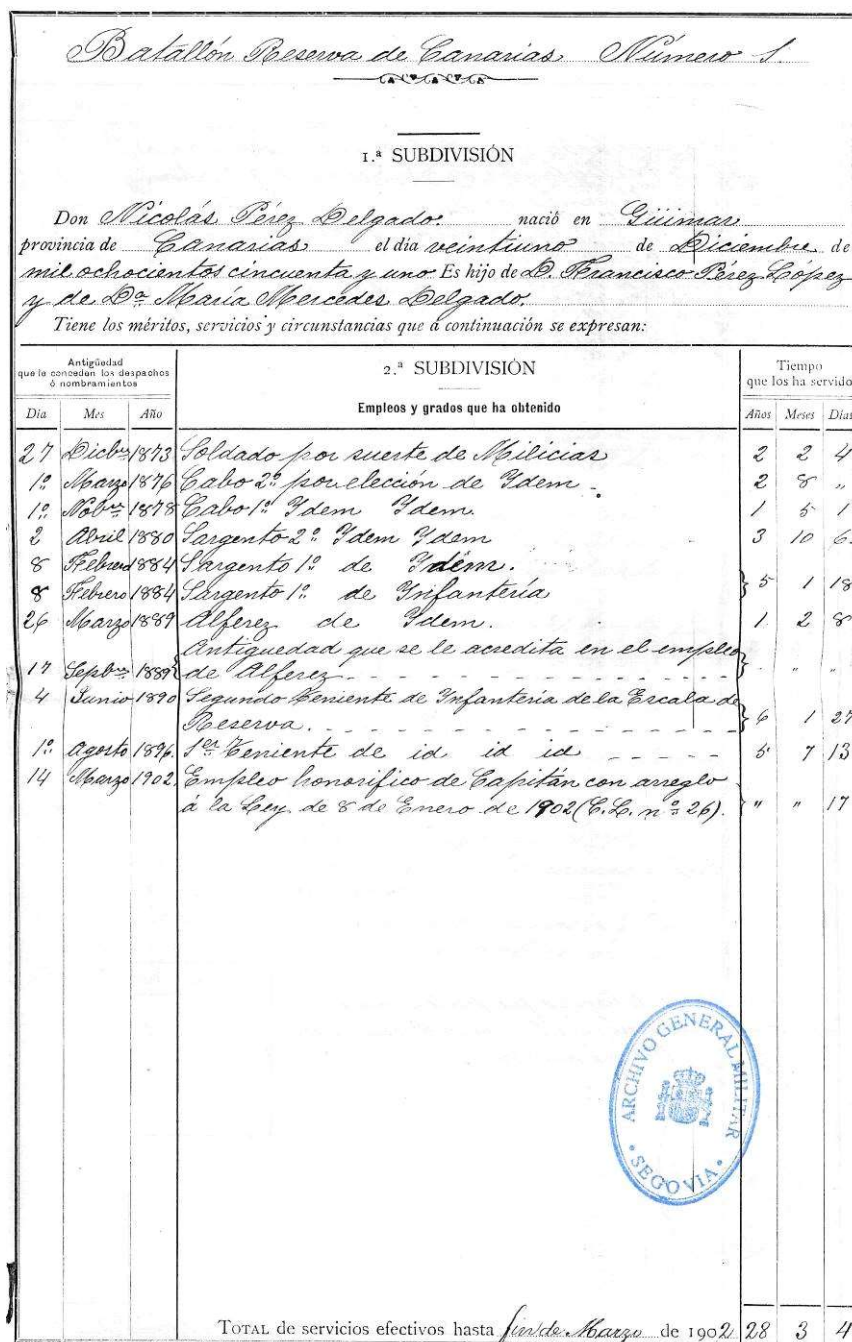 Batallón Reserva de Canarias Número 1.
1.ª SUBDIVISIÓN
Don Nicolás Pérez Delgado. nació en Güimar
provincia de Canarias el día veintiuno de Diciembre de
mil ochocientos cincuenta y uno. Es hijo de D. Francisco Pérez López
y de Dª María Mercedes Delgado.
Tiene los méritos, servicios y circunstancias que á continuación se expresan:
Antigüedad que le conceden los despachos ó nombramientos
2.ª SUBDIVISIÓN
Tiempo que los ha servido
Día Mes Año Empleos y grados que ha obtenido Años Meses Días
27 Dicbre 1873 Soldado por suerte de Milicias 2 2 4
1º Marzo 1876 Cabo 2º por elección de Idem. 2 8 "
1º Nobre 1878 Cabo 1º Idem Idem. 1 5 1
2 Abril 1880 Sargento 2º Idem Idem 3 10 6
8 Febrero 1884 Sargento 1º de Idem.
8 Febrero 1884 Sargento 1º de Infantería 5 1 18
26 Marzo 1889 Alferez de Idem. 1 2 8
Antiguedad que se le acredita en el empleo
17 Sepbre 1889 de Alferez " " "
4 Junio 1890 Segundo Teniente de Infantería de la Escala de
Reserva. 6 1 27
1º Agosto 1896. 1er Teniente de id id id 5 7 13
14 Marzo 1902. Empleo honorífico de Capitán con arreglo
á la Ley de 8 de Enero de 1902 (C.L. nº 26). " " 17
ARCHIVO GENERAL MILITAR
· SEGOVIA ·
TOTAL de servicios efectivos hasta fin de Marzo de 1902 28 3 4